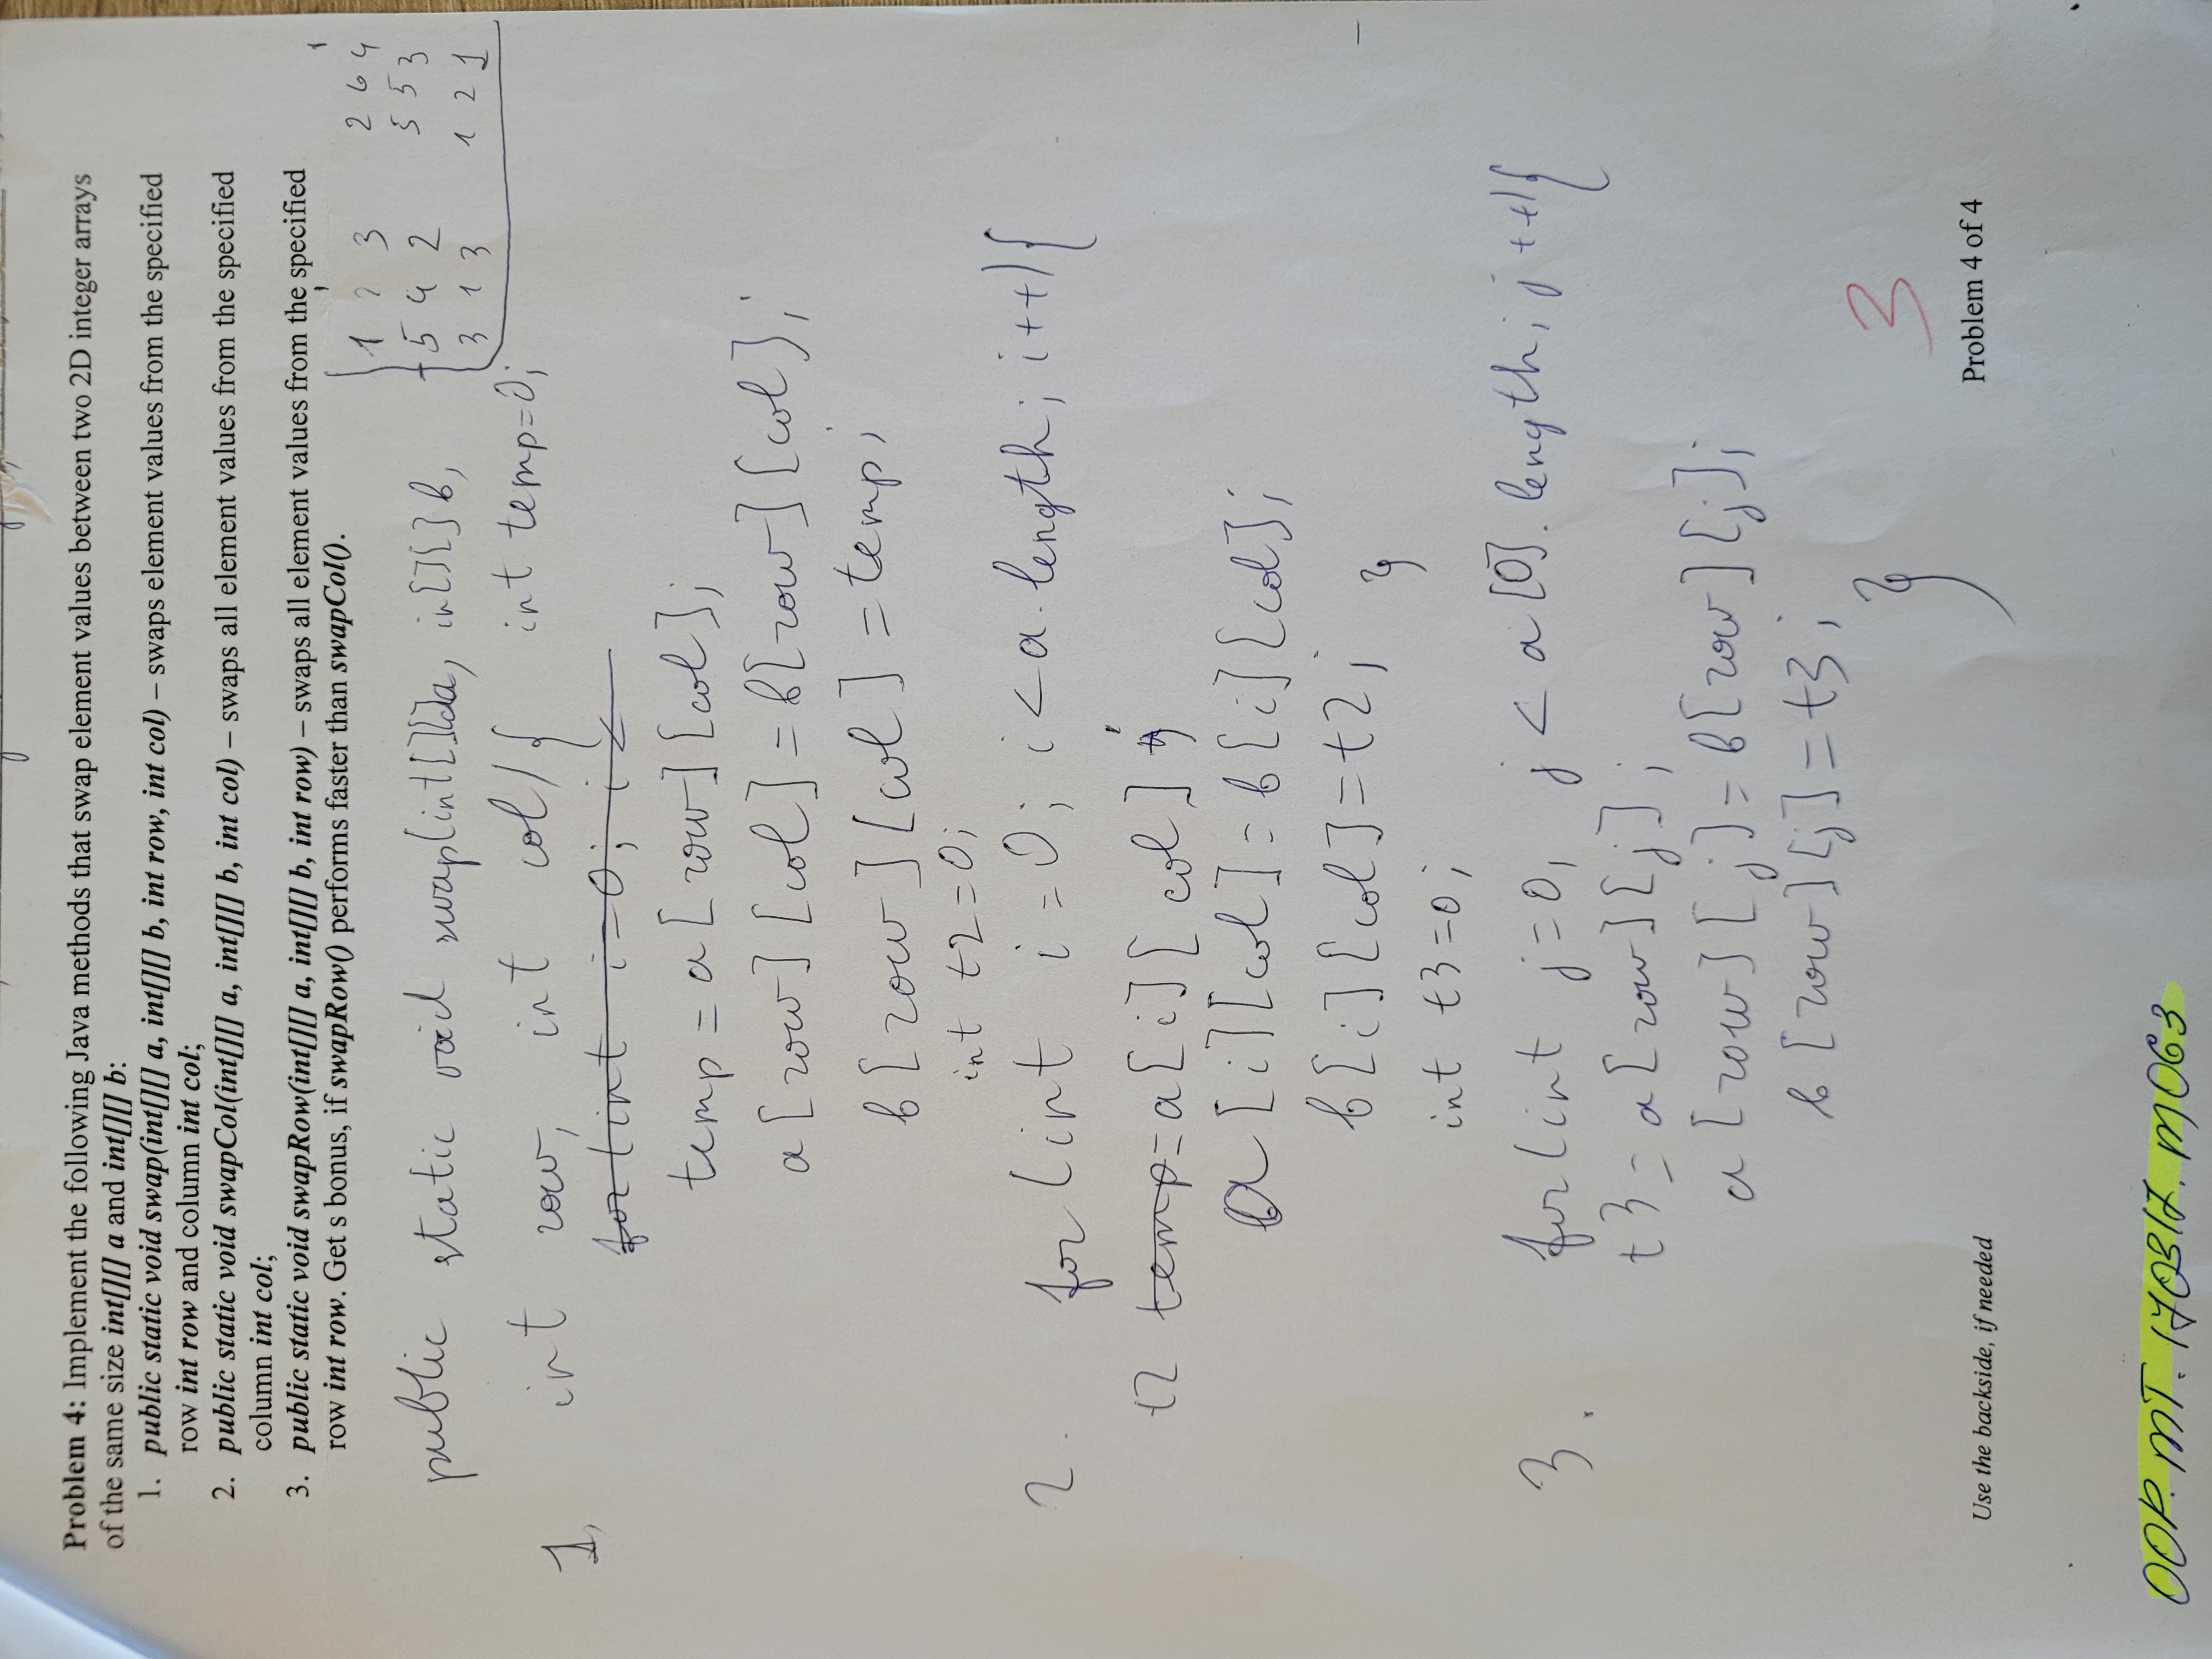 Problem 4: Implement the following Java methods that swap element values between two 2D integer arrays
of the same size int[][] a and int[][] b:
1. public static void swap(int[][] a, int[][] b, int row, int col) – swaps element values from the specified
row int row and column int col;
2. public static void swapCol(int[][] a, int[][] b, int col) – swaps all element values from the specified
column int col;
3. public static void swapRow(int[][] a, int[][] b, int row) – swaps all element values from the specified
row int row. Get s bonus, if swapRow() performs faster than swapCol().
1 2 3 2 6 4
5 4 2 5 5 3
3 1 3 1 2 1
public static void swap(int[][]a, in[][] b,
1, int row, int col){ int temp=0;
for(int i=0; i<
temp=a[row][col];
a[row][col]=b[row][col];
b[row][col]=temp;
int t2=0;
2. for(int i=0; i<a.length; i++){
t2 temp=a[i][col];
a[i][col]=b[i][col];
b[i][col]=t2; }
int t3=0;
3. for(int j=0, j<a[0].length; j++){
t3=a[row][j];
a[row][j]=b[row][j];
b[row][j]=t3;
}
3
Use the backside, if needed
Problem 4 of 4
OOP.MT.170317.M063